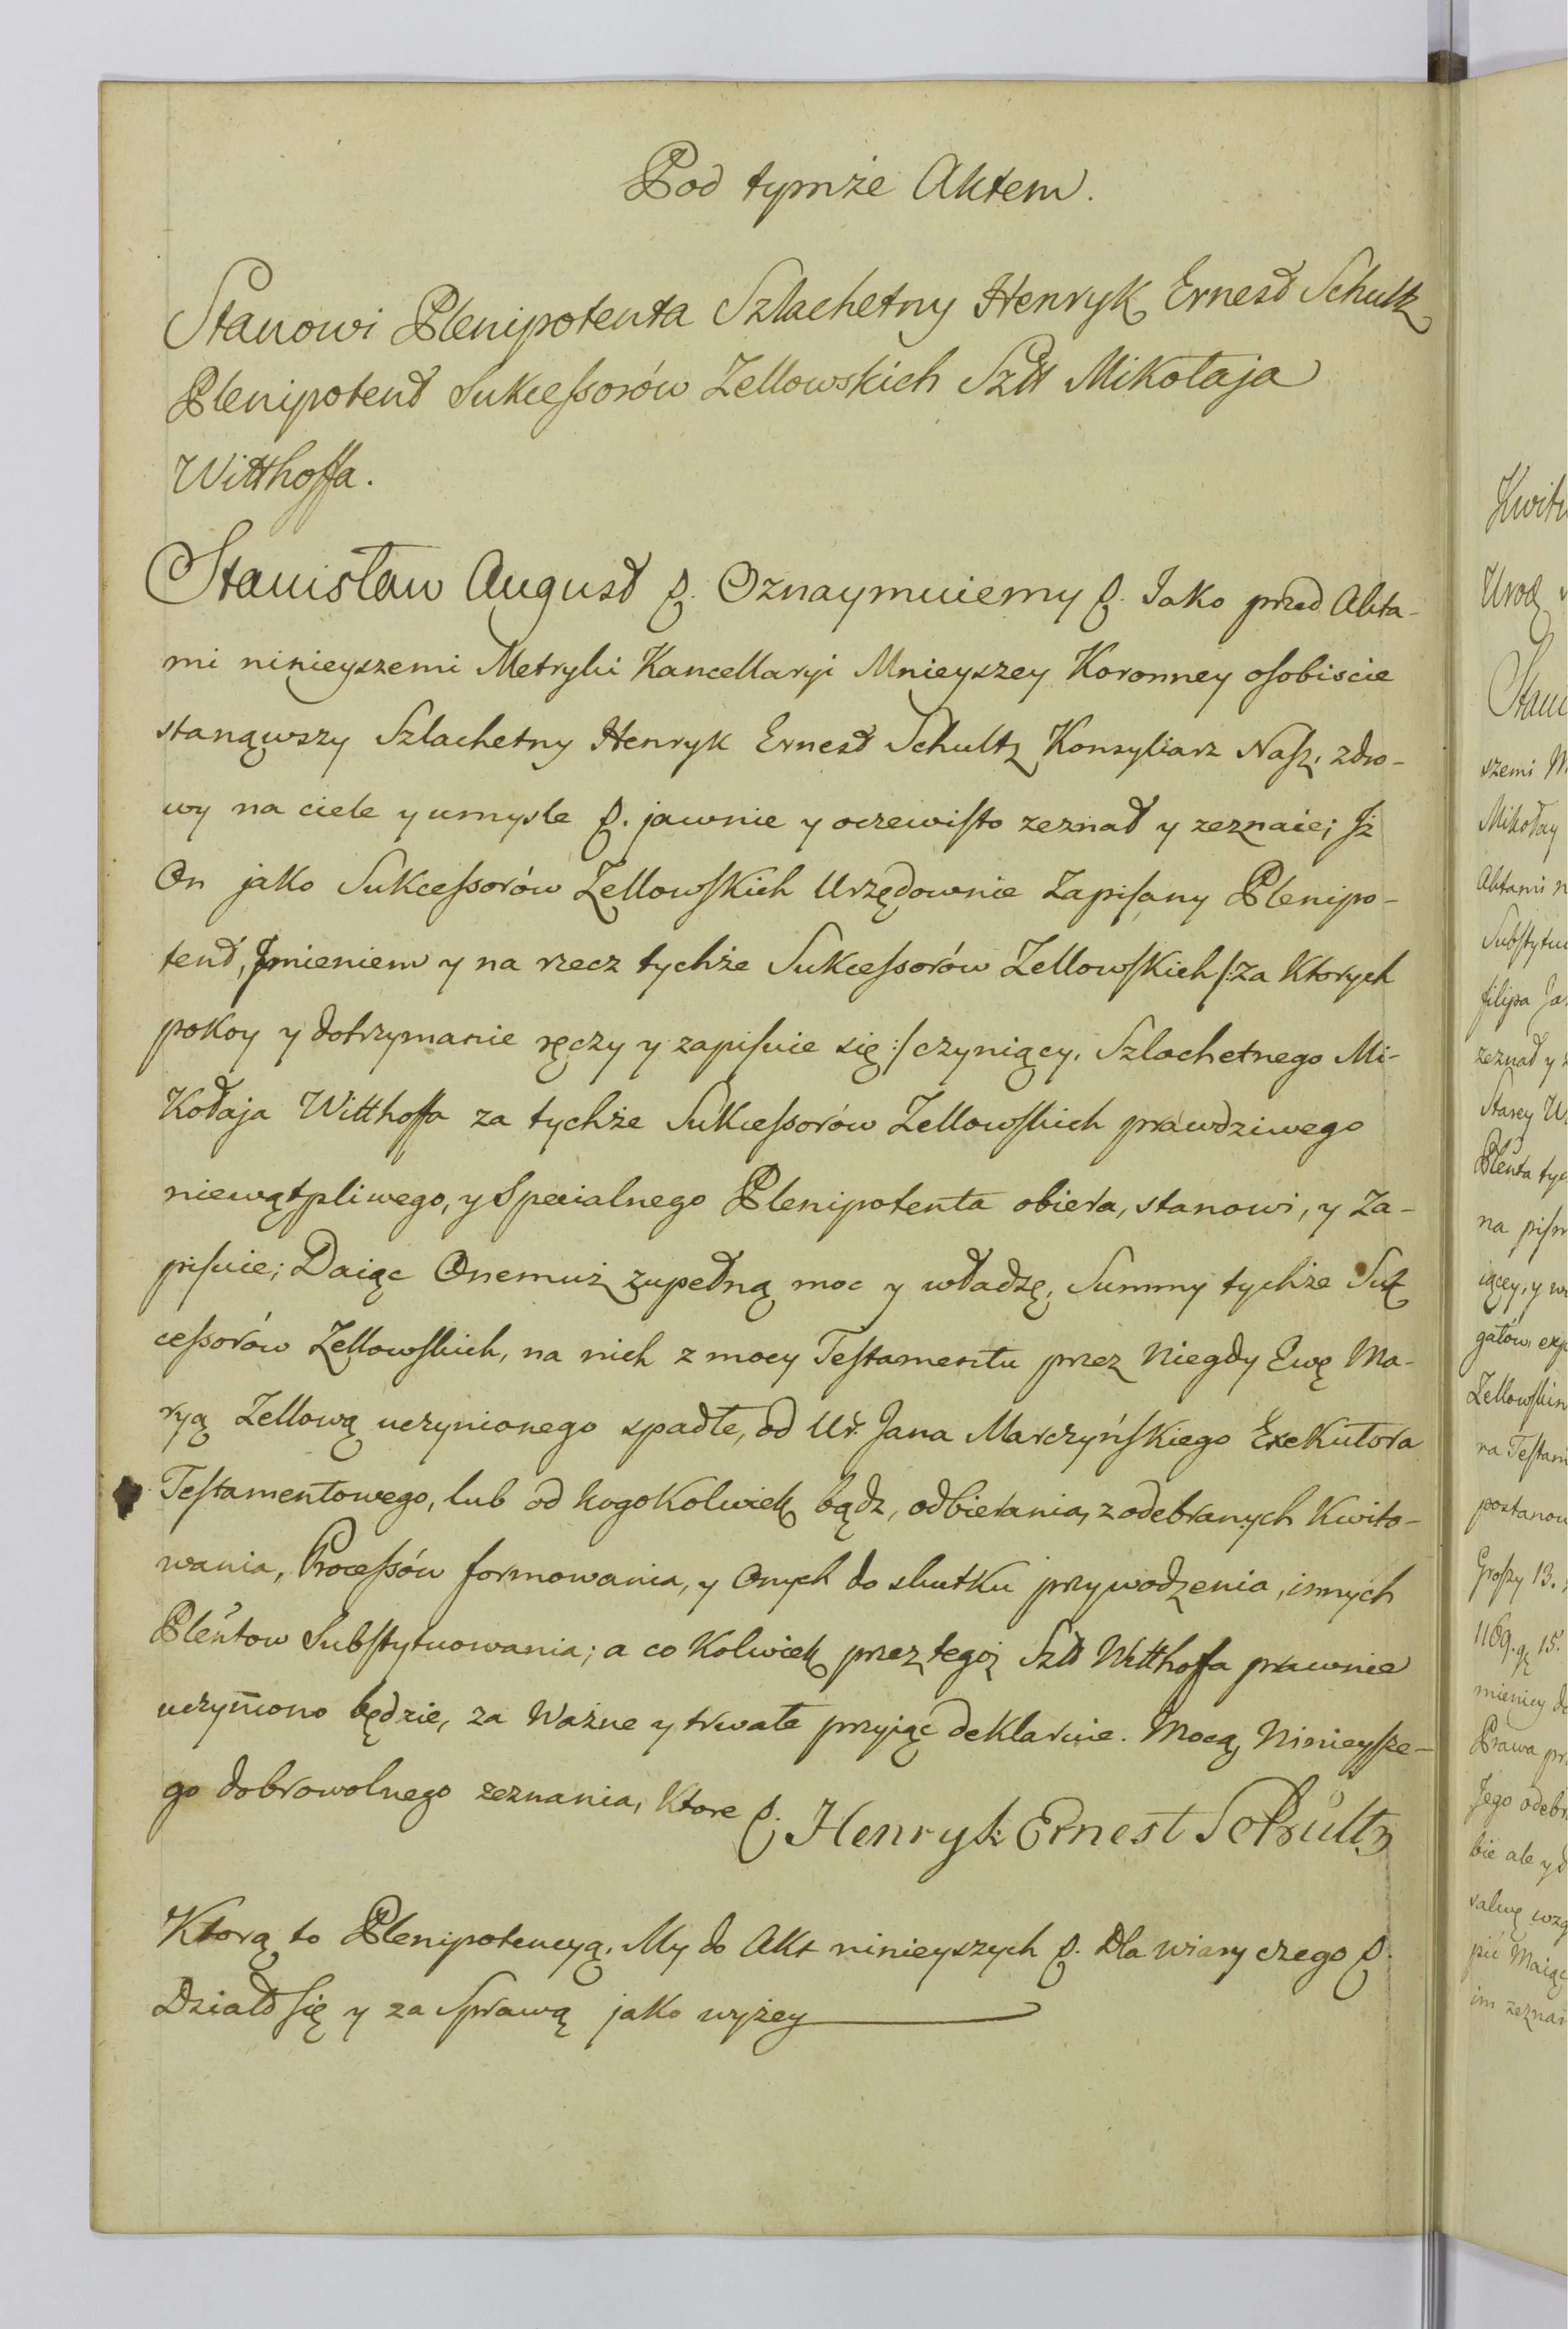 Pod tymże Aktem.
Stanowi Plenipotenta Szlachetny Henryk Ernest Schultz
Plenipotent Sukcessorów Zellowskich Szl Mikołaja
Witthoffa.
Stanisław August &. Oznaymuiemy &. Jako przed Akta-
mi ninieyszemi Metryki Kancellaryi Mnieyszey Koronney osobiscie
stanąwszy Szlachetny Henryk Ernest Schultz Konsyliarz Nasz, zdro-
wy na ciele y umysle &. jawnie y oczewisto zeznał y zeznaie; Iż
On jako Sukcessorów Zellowskich Urzędownie Zapisany Plenipo-
tent, Imieniem y na rzecz tychże Sukcessorów Zellowskich /: za Ktorych
pokoy y dotrzymanie ręczy y zapisuie się :/ czyniący, Szlachetnego Mi-
kołaja Witthoffa za tychże Sukcessorów Zellowskich prawdziwego
niewątpliwego, y Specialnego Plenipotenta obiera, stanowi, y Za-
pisuie; Daiąc Onemuż zupełną moc y władzę, Summy tychże Suk
cessorów Zellowskich, na nich z mocy Testamentu przez Niegdy Ewę Ma-
ryą Zellową uczynionego spadłe, od Ur. Jana Marczyńskiego Exekutora
Testamentowego, lub od kogokolwiek bądz, odbierania, z odebranych Kwito-
wania, Processów formowania, y Onych do skutku przywodzenia, innych
Pleńtow Substytuowania; a co Kolwiek przez tegoż Szl Witthoffa prawnie
uczyniono będzie, za Ważne y trwałe przyiąć deklaruie. Mocą Ninieysze-
go dobrowolnego zeznania, Ktore &. Henryk Ernest Schultz
Ktorą to Plenipotencyą, My do Akt ninieyszych &. Dla wiary czego &.
Działo się y za Sprawą jako wyżey
Stani
szemi
Mikołay
Aktami
filipa
zeznał y
Starey
Pleńta
na pism
Zellowskim
na Testam
postanow
Groszy 13.
1169. 15.
Prawa
Jego odebr